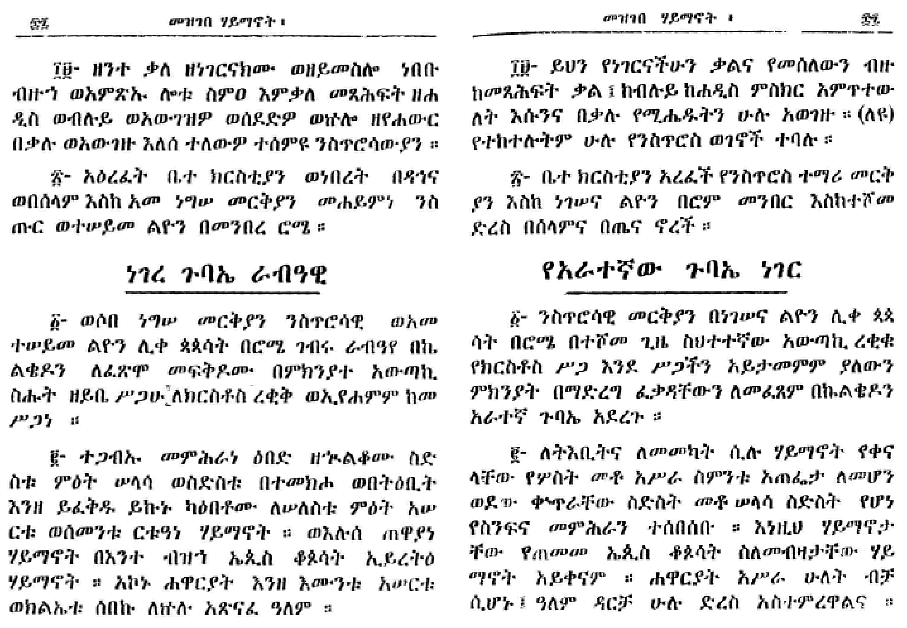 ፳፯ መዝገበ ሃይማኖት ፡
፲፱- ዘንተ ቃለ ዘነገርናክሙ ወዘይመስሎ ነበቡ
ብዙኀ ወአምጽኡ ሎቱ ስምዐ እምቃለ መጻሕፍት ዘሐ
ዲስ ወብሉይ ወአውገዝዎ ወሰደድዎ ወኵሎ ዘየሐውር
በቃሉ ወአውገዙ እለሰ ተለውዎ ተሰምዩ ንስጥሮሳውያን ።
፳- አዕረፈት ቤተ ክርስቲያን ወነበረት በዳኅና
ወበሰላም እስከ አመ ነግሠ መርቅያን መሐይምነ ንስ
ጡር ወተሠይመ ልዮን በመንበረ ሮሜ ።
ነገረ ጉባኤ ራብዓዊ
፩- ወሶበ ነግሠ መርቅያን ንስጥሮሳዊ ወአመ
ተሠይመ ልዮን ሊቀ ጳጳሳት በሮሜ ገብሩ ራብዓየ በኬ
ልቄዶን ለፈጽሞ መፍትዶሙ በምክንያተ አውጣኪ
ስሒት ዘይቤ ሥጋሁ ለክርስቶስ ረቂቅ ወኢየሐምም ከመ
ሥጋነ ።
፪- ተጋብኡ መምሕራነ ዕበድ ዘኍልቆሙ ስድ
ስቱ ምዕት ሠላሳ ወስድስቱ በተመክሖ ወበትዕቢት
እንዘ ይፈቅዱ ይኩኑ ካዕበቶሙ ለሠለስቱ ምዕት አሠ
ርቱ ወሰመንቱ ርቱዓነ ሃይማኖት ። ወእሉሰ ጠዋያነ
ሃይማኖት በእንተ ብዝኀ ኤጲስ ቆጶሳት ኢይረትዕ
ሃይማኖት ። አኮኑ ሐዋርያት እንዘ እሙንቱ አሠርቱ
ወክልኤቱ ሰበኩ ለኵሉ አጽናፈ ዓለም ።
መዝገበ ሃይማኖት ፡ ፳፯
፲፱- ይህን የነገርናችሁን ቃልና የመሰለውን ብዙ
ከመጻሕፍት ቃል ፤ ከብሉይ ከሐዲስ ምስክር አምጥተው
ለት እሱንና በቃሉ የሚሔዱትን ሁሉ አወገዙ ። (ለዩ)
የተከተሉትም ሁሉ የንስጥሮስ ወገኖች ተባሉ ።
፳- ቤተ ክርስቲያን አረፈች የንስጥሮስ ተማሪ መርቅ
ያን እስከ ነገሠና ልዮን በሮም መንበር እስከተሾመ
ድረስ በሰላምና በጤና ኖረች ።
የአራተኛው ጉባኤ ነገር
፩- ንስጥሮሳዊ መርቅያን በነገሠና ልዮን ሊቀ ጳጳ
ሳት በሮም በተሾመ ጊዜ ስህተተኛው አውጣኪ ረቂቁ
የክርስቶስ ሥጋ እንደ ሥጋችን አይታመምም ያለውን
ምክንያት በማድረግ ፈቃዳቸውን ለመፈጸም በኬልቄዶን
አራተኛ ጉባኤ አደረጉ ።
፪- ለትእቢትና ለመመካት ሲሉ ሃይማኖት የቀና
ላቸው የሦስት መቶ አሥራ ስምንቱ አጠፌታ ለመሆን
ወደው ቍጥራቸው ስድስት መቶ ሠላሳ ስድስት የሆነ
የስንፍና መምሕራን ተሰበሰቡ ። እነዚህ ሃይማኖታ
ቸው የጠመመ ኤጲስ ቆጶሳት ስለመብዛታቸው ሃይ
ማኖት አይቀናም ። ሐዋርያት አሥራ ሁለት ብቻ
ሲሆኑ ፤ ዓለም ዳርቻ ሁሉ ድረስ አስተምረዋልና ።